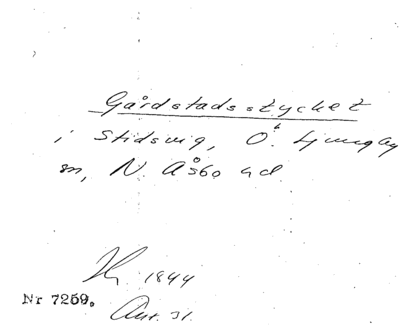 Gårdstadsstycket
i Stidsvig, Ö. Ljungby
sn, N. Åsbo hd.
1844
Nr 7259.
Ant. 31.